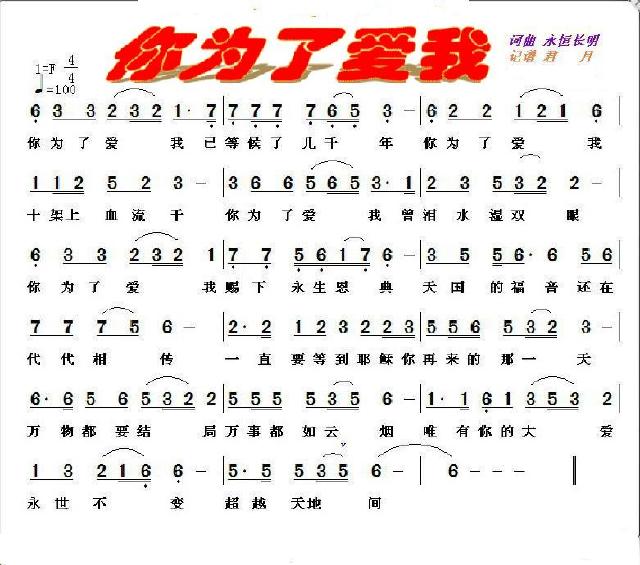 你为了爱我
词曲 永恒长明
记谱 君 月
1=F 4/4
♩=100
6 3 3 2 3 2 1· 7 | 7 7 7 7 6 5 3 - | 6 2 2 1 2 1 6
你 为 了 爱 我 已 等 候 了 几 千 年 你 为 了 爱 我
1 1 2 5 2 3 - | 3 6 6 5 6 5 3· 1 | 2 3 5 3 2 3 -
十 架 上 血 流 干 你 为 了 爱 我 曾 泪 水 湿 双 眼
6 3 3 2 3 2 1 | 7 7 5 6 1 7 6 - | 3 5 5 6· 6 5 6
你 为 了 爱 我 赐 下 永 生 恩 典 天 国 的 福 音 还 在
7 7 7 5 6 - | 2· 2 1 2 3 2 2 3 | 5 5 5 5 3 2 3 -
代 代 相 传 一 直 要 等 到 耶 稣 你 再 来 的 那 一 天
6· 6 5 6 5 3 2 1 | 5 5 5 5 3 2 - | 1· 1 6 1 3 5 3 2
万 物 都 要 结 局 万 事 都 如 云 烟 唯 有 你 的 大 爱
1 3 2 1 6 6 - | 5· 5 5 3 5 6 - | 6 - - - ‖
永 世 不 变 超 越 天 地 间